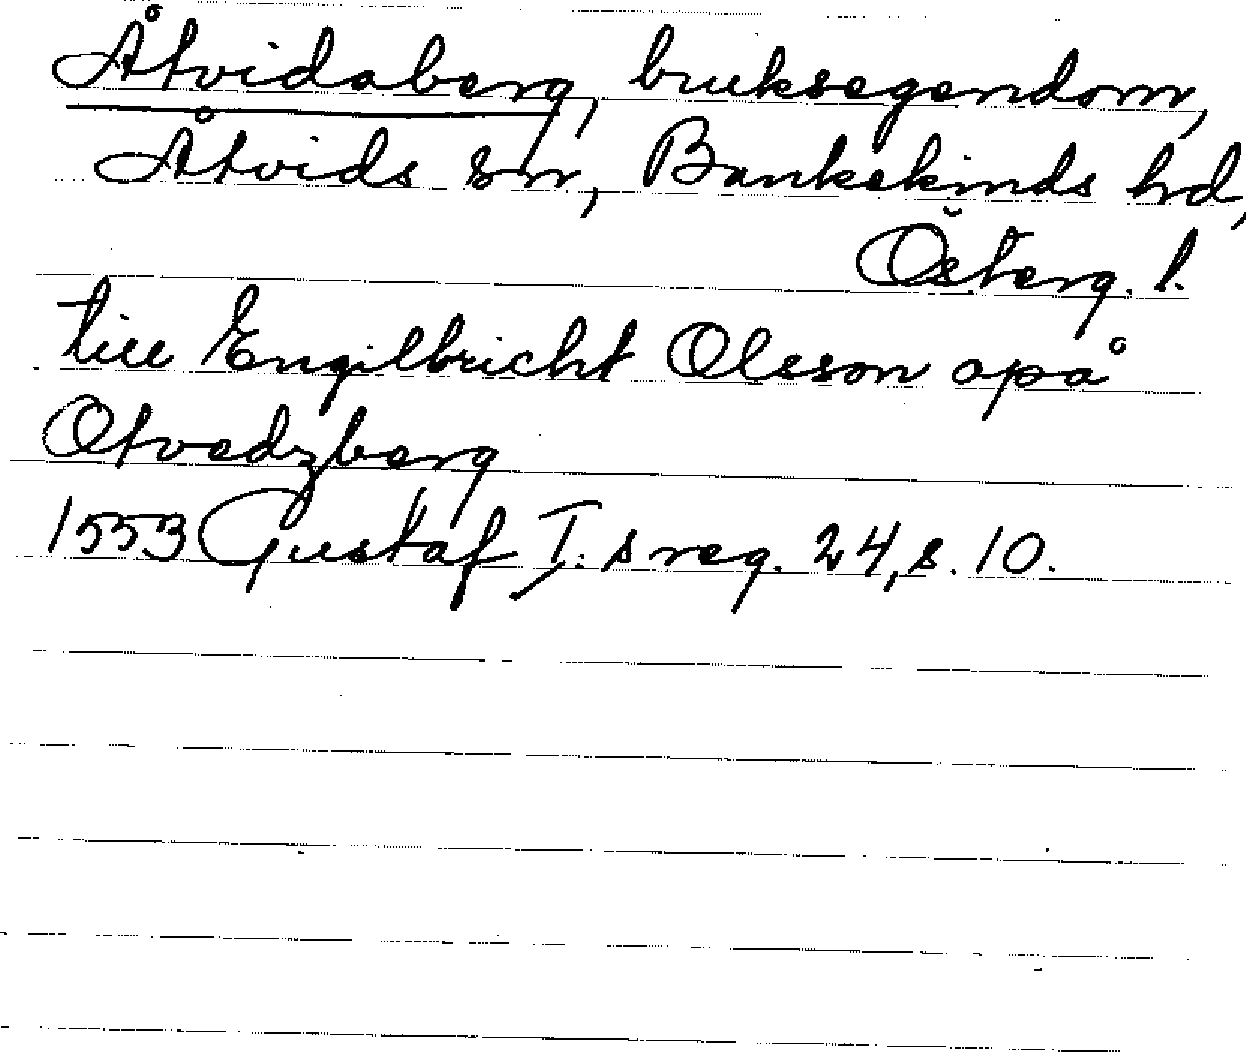 Åtvidaberg, bruksegendom,
Åtvids sn, Bankekinds hd,
Österg. l.
till Engilbricht Olsson opå
Otvedzberg
1553 Gustaf I:s reg. 24, s. 10.